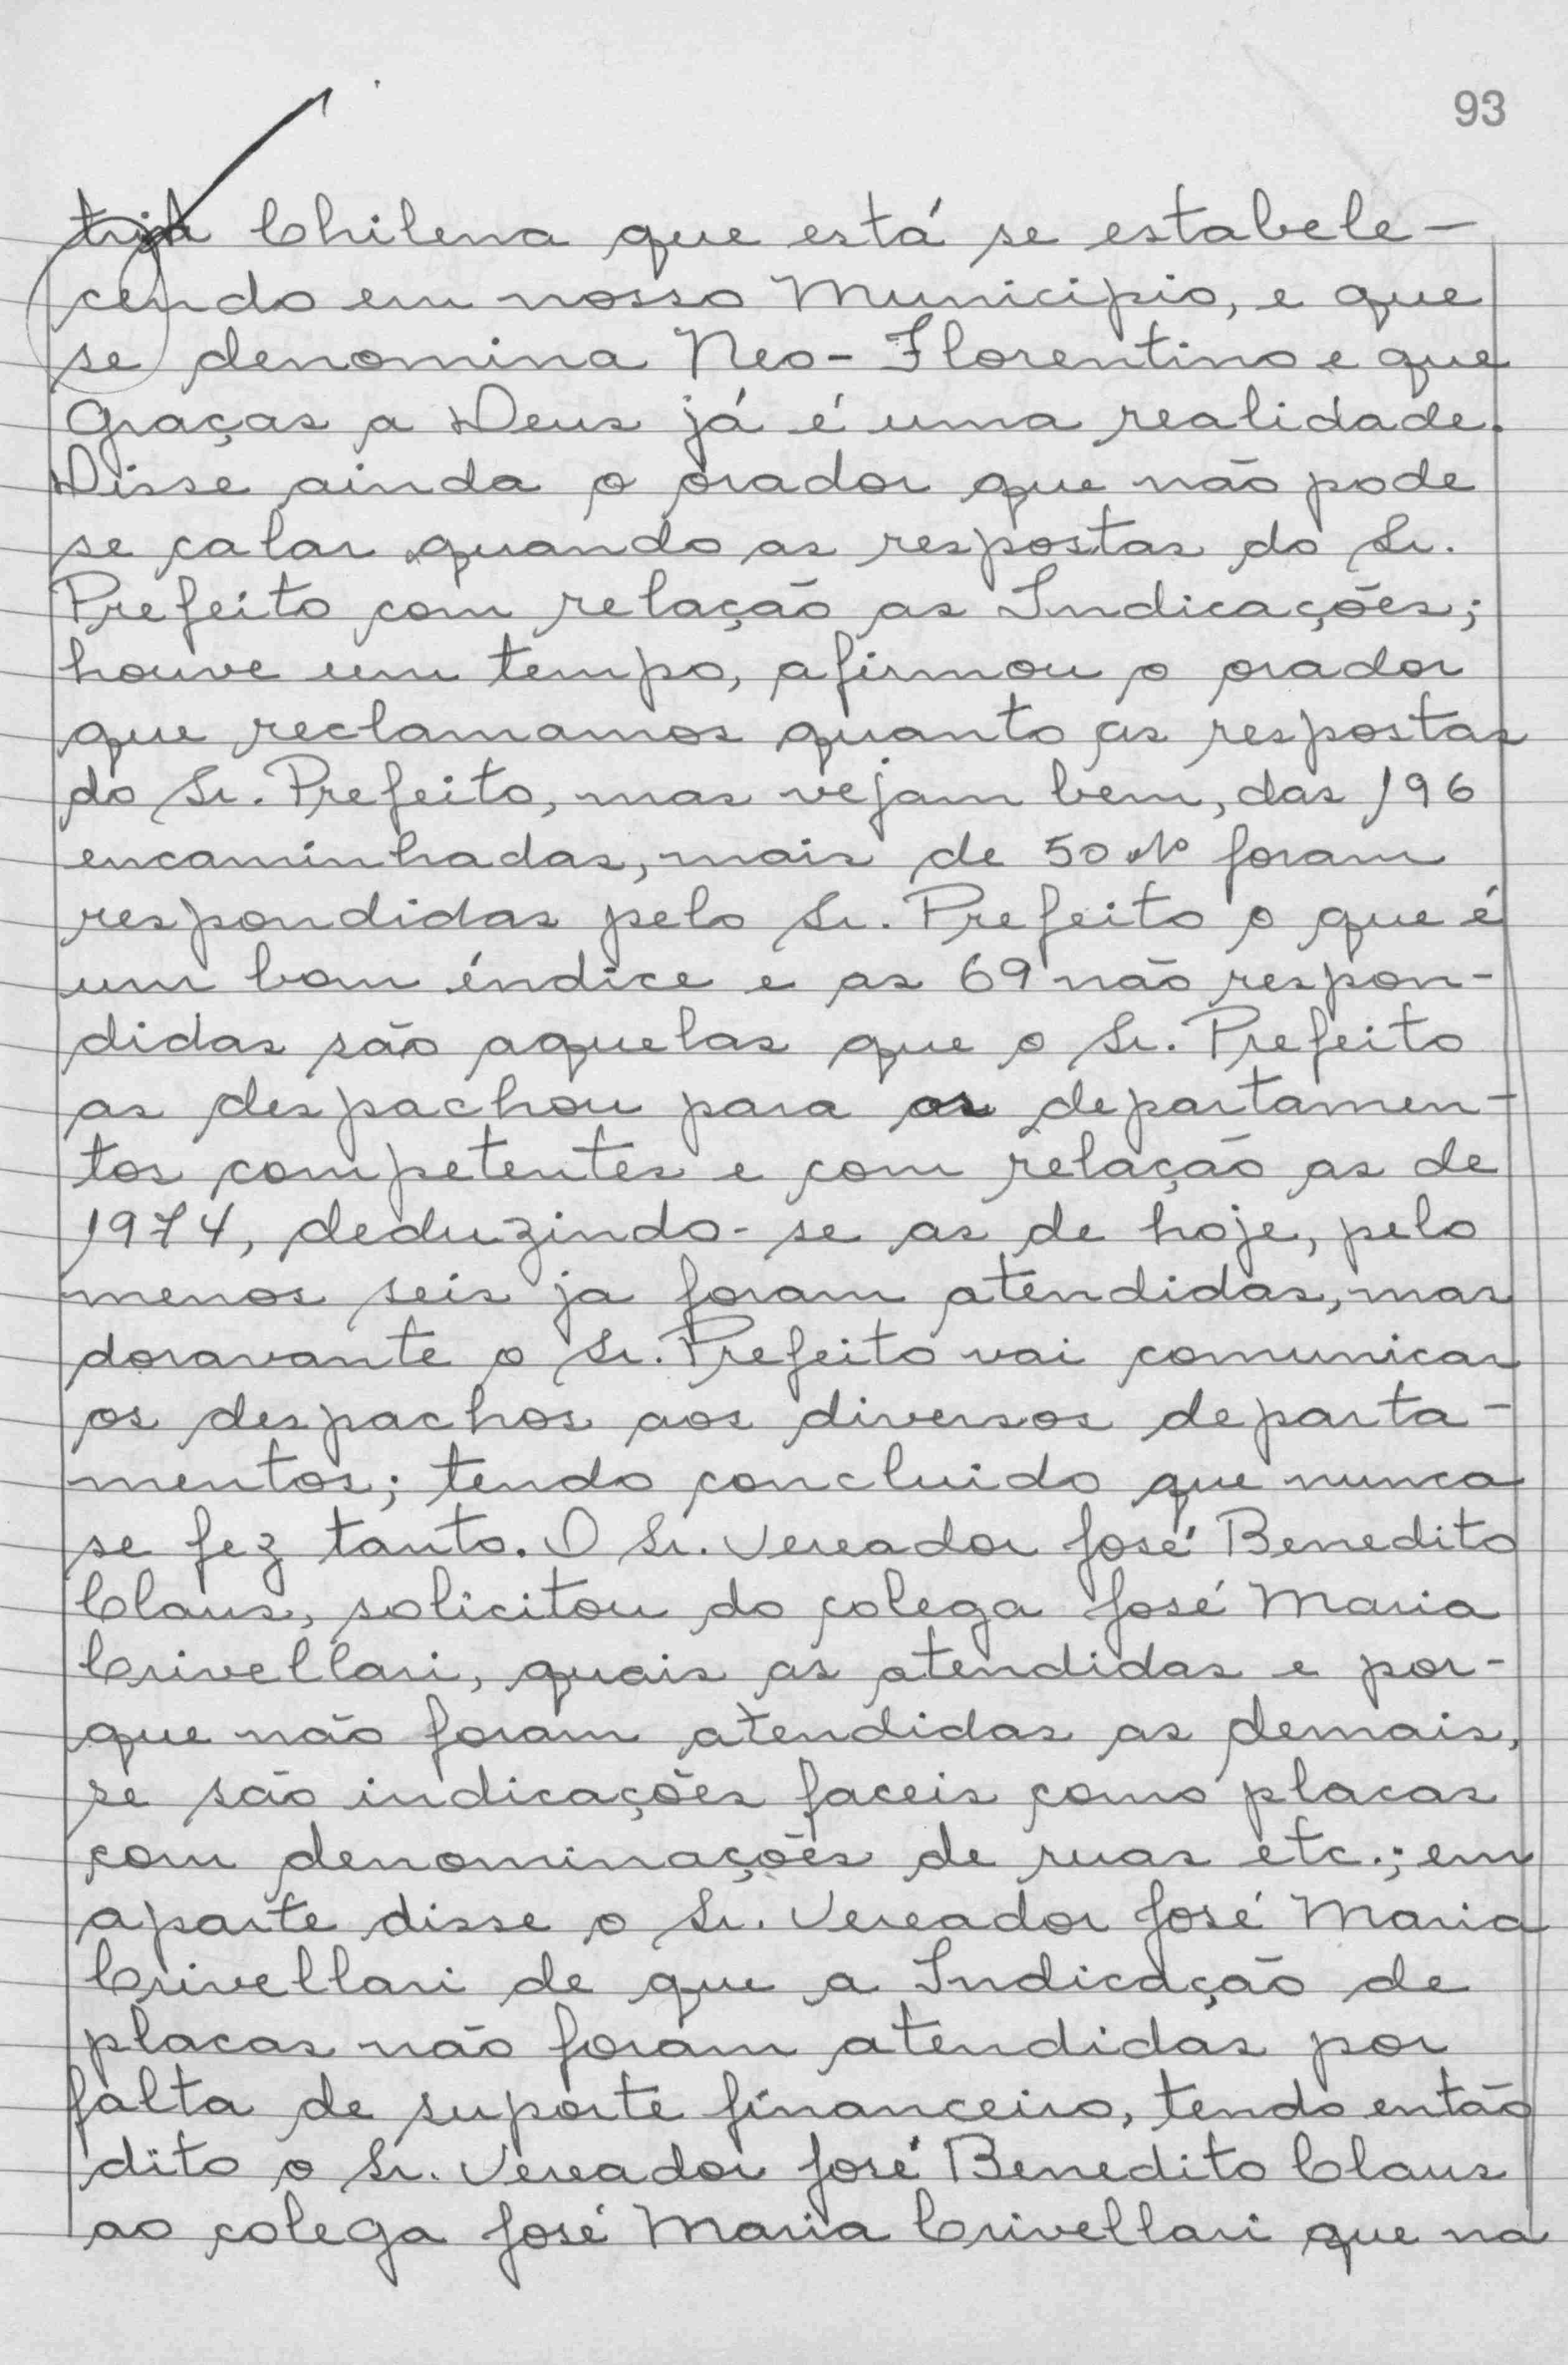 93
tria Chilena que está se estabele-
cendo em nosso Municipio, e que
se denomina Neo-Florentino e que
Graças a Deus já é uma realidade.
Disse ainda o orador que não pode
se calar quando as respostas do Sr.
Prefeito com relação as Indicações;
houve um tempo, afirmou o orador
que reclamamos quanto as respostas
do Sr. Prefeito, mas vejam bem, das 196
encaminhadas, mais de 50% foram
respondidas pelo Sr. Prefeito o que é
um bom índice e as 69 não respon-
didas são aquelas que o Sr. Prefeito
as despachou para os departamen-
tos competentes e com relação as de
1974, deduzindo-se as de hoje, pelo
menos seis ja foram atendidas, mas
doravante o Sr. Prefeito vai comunicar
os despachos aos diversos departa-
mentos; tendo concluido que nunca
se fez tanto. O Sr. Vereador José Benedito
Claus, solicitou do colega José Maria
Crivellari, quais as atendidas e por-
que não foram atendidas as demais,
se são indicações faceis como placas
com denominações de ruas etc.; em
aparte disse o Sr. Vereador José Maria
Crivellari de que a Indicação de
placas não foram atendidas por
falta de suporte financeiro, tendo então
dito o Sr. Vereador José Benedito Claus
ao colega José Maria Crivellari que na